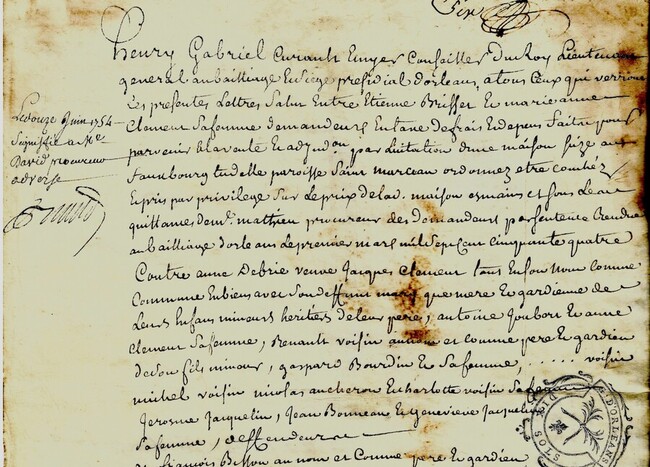 Henry Gabriel Curault Ecuyer Conseiller Du Roy Lieutenant
general au bailliage Ensiège présidial dorleans, a tous Ceux qui verront
Ces presentes Lettres Salut Entre Etienne Brisset Et marie anne
Clement Safemme demandeurs En taxe defrais Endepens Faits pour
parvenir alavente Et adjud.on par Licitation dune maison Size au
Fauxbourg tudelle paroisse Saint marceau ordonnez etre
Expris par privilege Sur Leprix delad. maison esmains et Sous Les
quittances dem.e mathieu procureur des demandeurs par Sentence Rendue
au bailliage dorleans Lepremier mars mil Sept Cent Cinquante quatre
Contre anne Debrie veuve Jacques Clement tant Enson Nom Comme
Commune Enbiens avec Son deffunt mary que mere Et gardienne de
Leurs Enfans mineurs heritiers de leur pere, antoine Joubert Et anne
Clement Safemme, Renault voisin aunom et Comme pere Et gardien
de Son fils mineur, gaspard Bourdin Et Safemme, ...... voisin
michel voisin nicolas Et Charlotte voisin Safemme
Jerosme Jacquelin, Jean Bonneau Et Genevieve Jacquelin
Safemme, deffendeurs
Et francois Bisson au nom et Comme pere Et gardien
Ledouze Juin 1754
Signiffié a Me
David procureur
adverse
D'ORLEANS